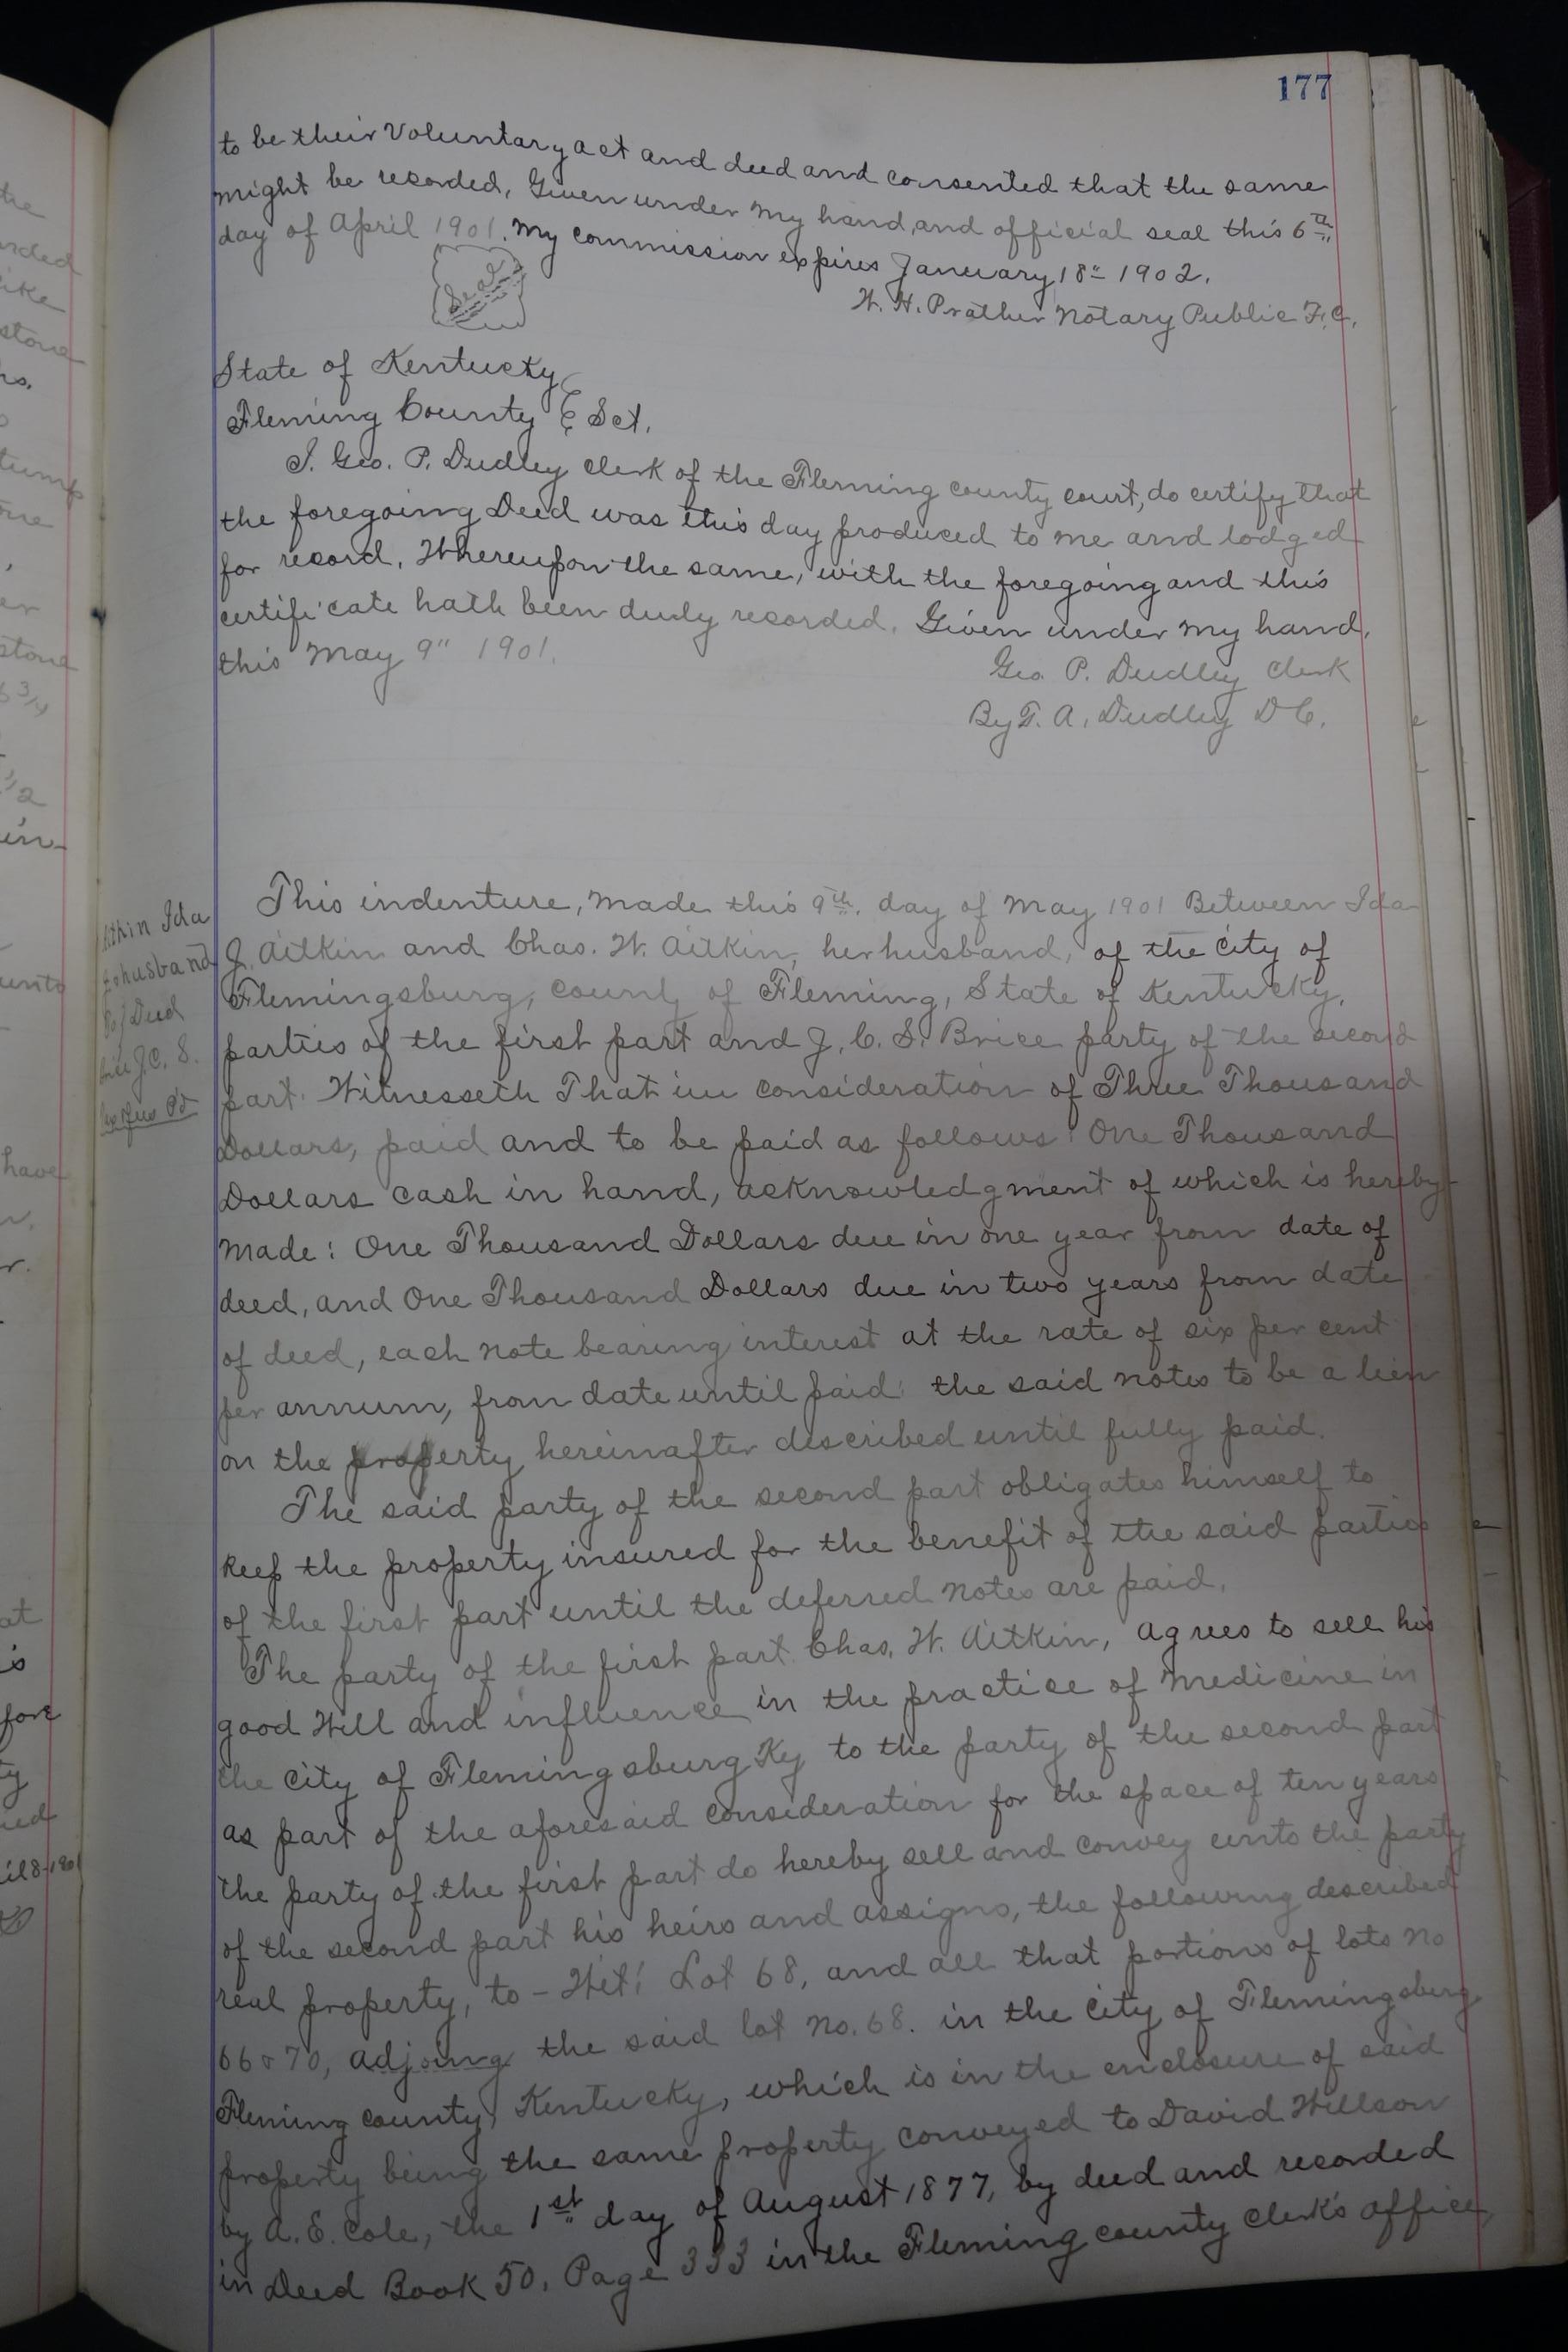 177
to be their Voluntary act and deed and consented that the same
might be recorded, Given under my hand, and official seal this 6th
day of April 1901. my commission expires January 18" 1902.
Seal
W. H. Prather Notary Public F. C.
State of Kentucky
Fleming County Sct.
I. Geo. P. Dudley clerk of the Fleming county court, do certify that
the foregoing Deed was this day produced to me and lodged
for record. Whereupon the same, with the foregoing and this
certificate hath been duly recorded. Given under my hand,
this May 9" 1901.
Geo. P. Dudley Clerk
By T. A. Dudley D C.
Aitkin Ida
& husband
Deed
J. C. S.
This indenture, made this 9th. day of May 1901 Between Ida
J. Aitkin and Chas. W. Aitkin, her husband, of the city of
Flemingsburg, county of Fleming, State of Kentucky,
parties of the first part and J. C. S. Brice party of the second
part. Witnesseth That in consideration of Three Thousand
Dollars, paid and to be paid as follows: One Thousand
Dollars cash in hand, acknowledgment of which is hereby
made: One Thousand Dollars due in one year from date of
deed, and One Thousand Dollars due in two years from date
of deed, each note bearing interest at the rate of six per cent
per annum, from date until paid: the said notes to be a lien
on the property hereinafter described until fully paid.
The said party of the second part obligates himself to
keep the property insured for the benefit of the said parties
of the first part until the deferred notes are paid.
The party of the first part Chas. W. Aitkin, agrees to sell his
good Will and influence in the practice of medicine in
the city of Flemingsburg Ky to the party of the second part
as part of the aforesaid consideration for the space of ten years
the party of the first part do hereby sell and convey unto the party
of the second part his heirs and assigns, the following described
real property, to-Wit: Lot 68, and all that portions of lots no
66 & 70, adjoing the said lot No. 68. in the city of Flemingsburg
Fleming county, Kentucky, which is in the enclosure of said
property being the same property conveyed to David Willson
by A. E. Cole, the 1st day of August 1877, by deed and recorded
in Deed Book 50, Page 333 in the Fleming county clerk's office,